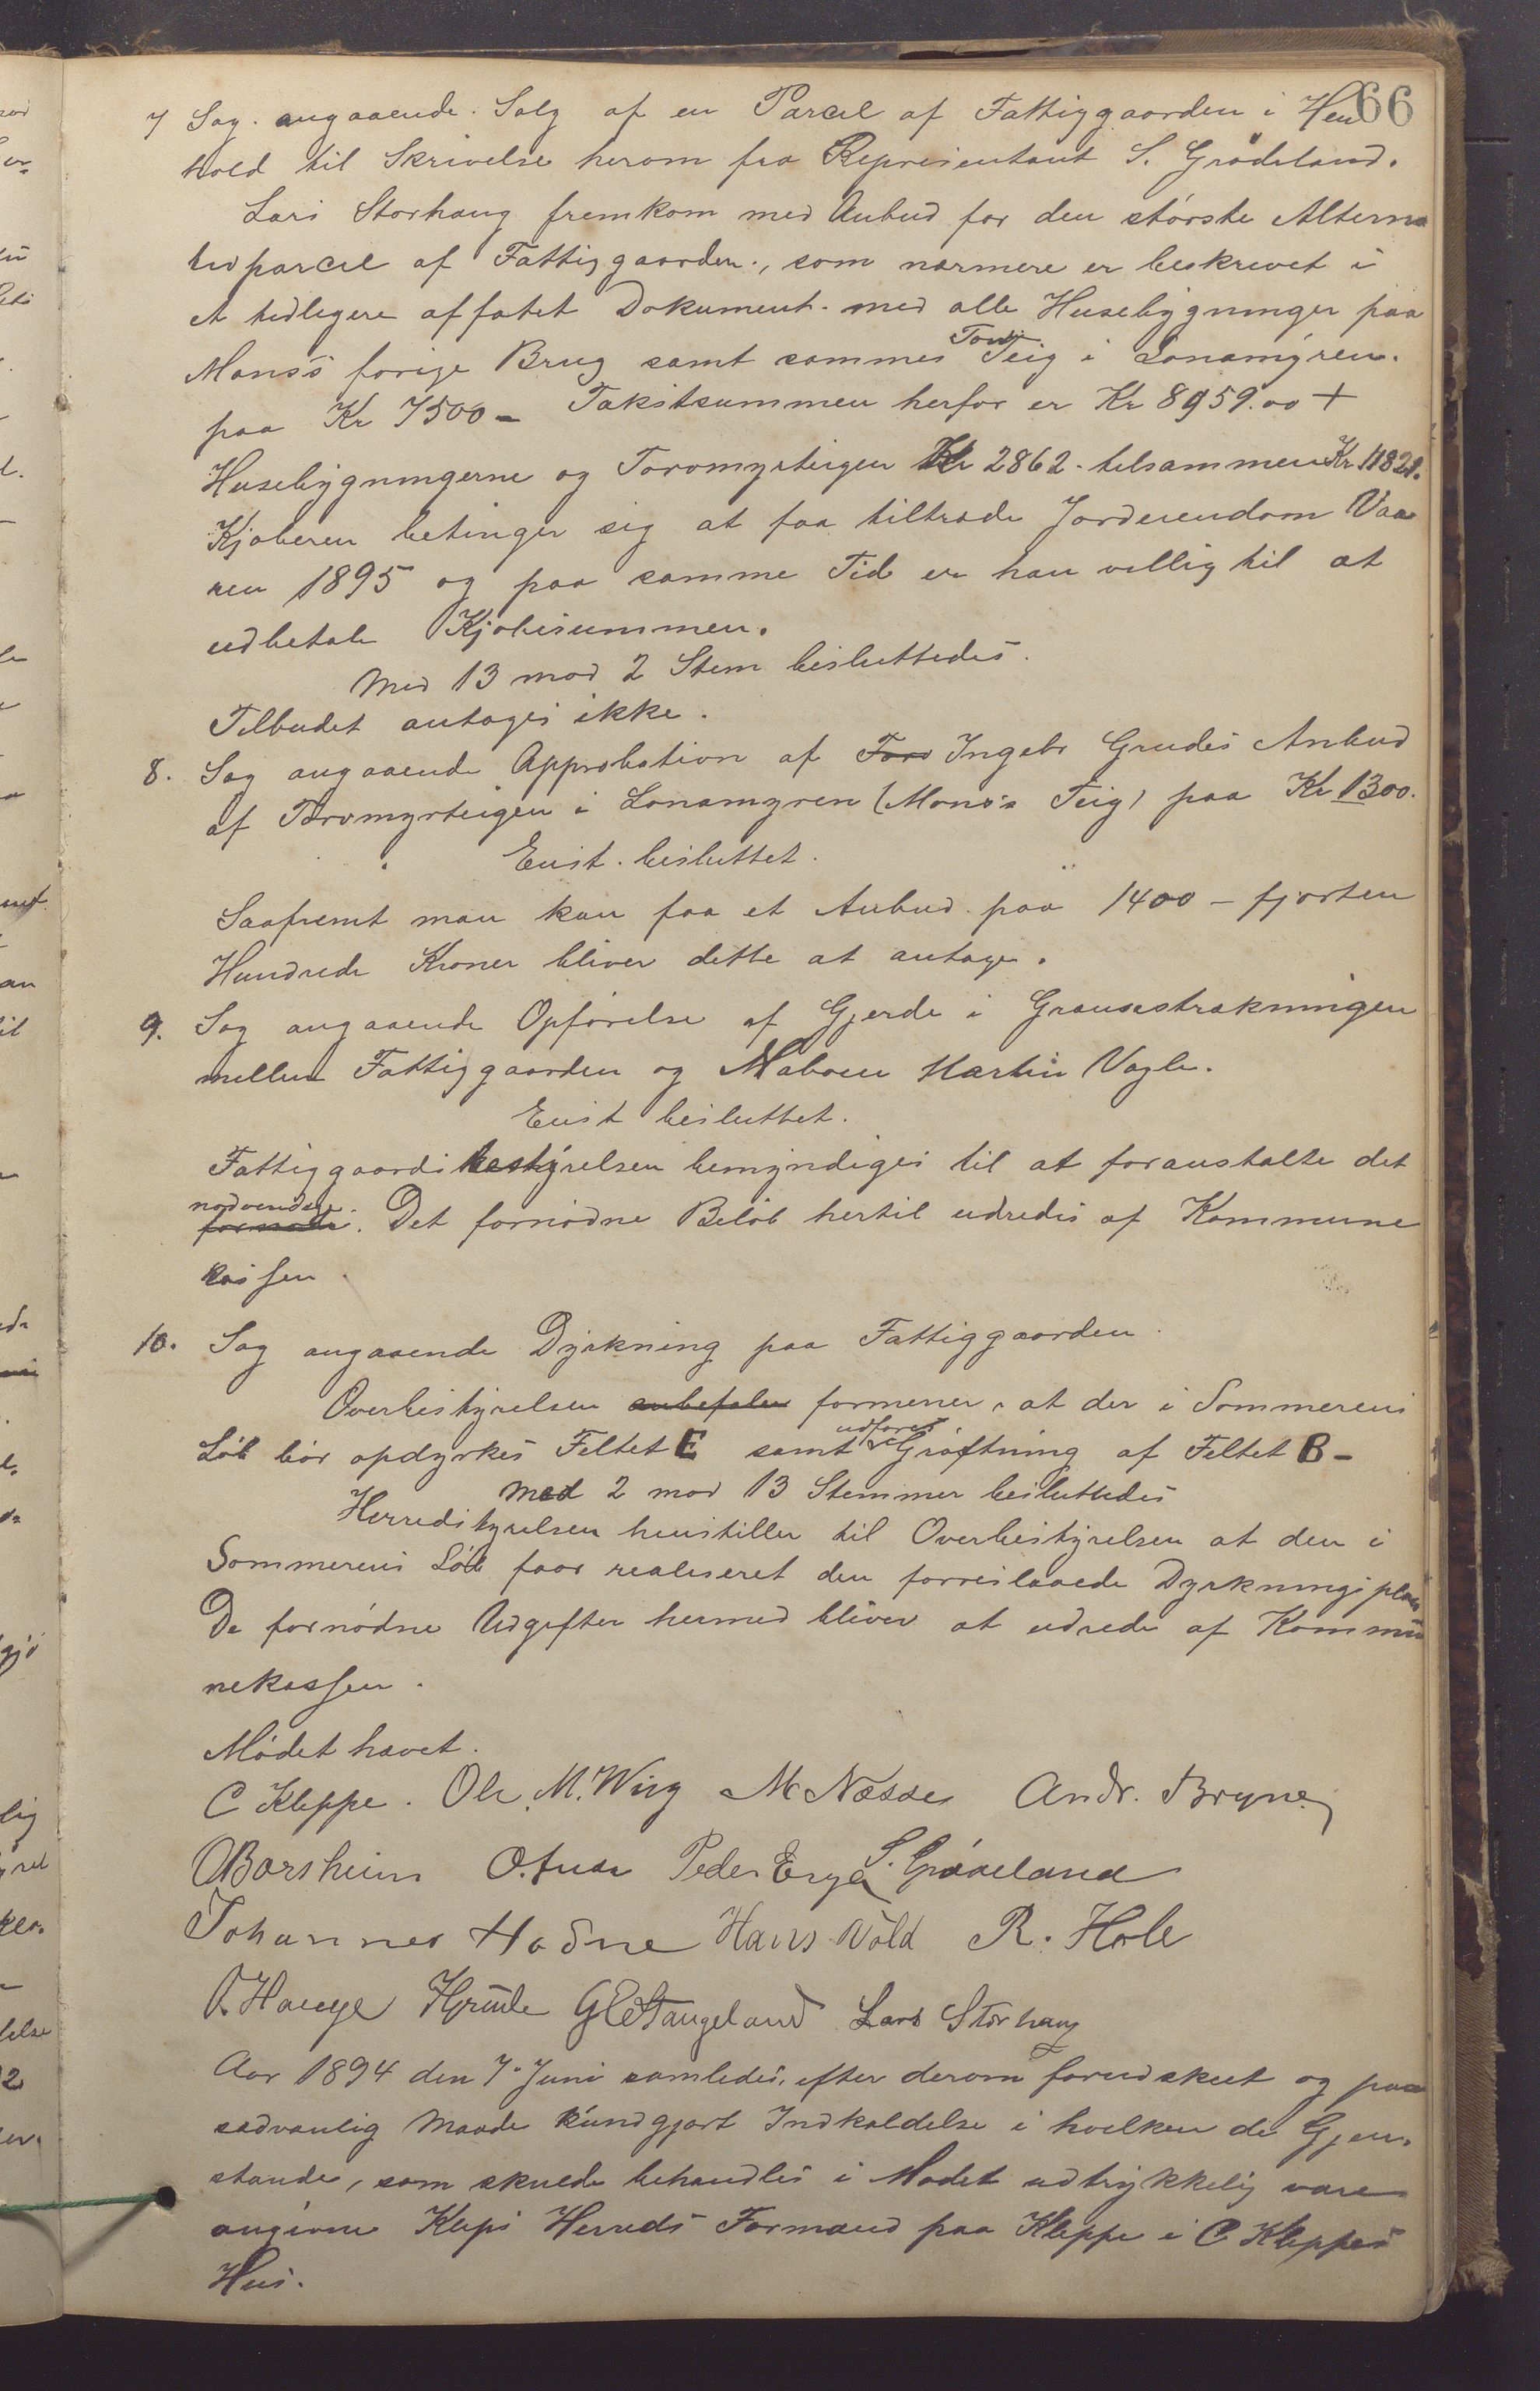 66
7 Sag angaaende Salg af en Parcel af Fattiggaarden i Hen
hold til Skrivelse herom fra Repræsentant S. Grødeland.
Lars Storhaug fremkom med Anbud for den største Alterna
tivparcel af Fattiggaarden, som nærmere er beskrevet i
et tidligere affatet Dokument med alle Husebygninger paa
Mons's forige Brug samt sammes Torv Teig i Lonamyren.
paa Kr 7500 - Takstsummen herfor er Kr 8959.00 +
Husebygningerne og Torvmyrteigen Kr 2862. tilsammen Kr. 11821.
Kjøberen betinger sig at faa tiltræde Jordeiendom Vaa
ren 1895 og paa samme Tid er han villig til at
udbetale Kjøbesummen.
Med 13 mod 2 Stem besluttedes.
Tilbudet antages ikke.
8. Sag angaaende Approbation af Torv Ingebr Grudes Anbud
af Torvmyrteigen i Lonamyren (Mons's Teig) paa Kr 1300.
Enst. besluttet.
Saafremt man kan faa et Anbud paa 1400 - fjorten
Hundrede Kroner bliver dette at antage.
9. Sag angaaende Opførelse af Gjerde i Grænsestrækningen
mellem Fattiggaarden og Naboen Martin Vagle.
Enst besluttet.
Fattiggaardsbestyrelsen bemyndiges til at foranstalte det
nødvendige. Det fornødne Beløb hertil udredes af Kommune
kassen.
10. Sag angaaende Dyrkning paa Fattiggaarden.
Overbestyrelsen anbefaler formener, at der i Sommerens
Løb bør opdyrkes Feltet E samt udføres Grøftning af Feltet B -
Med 2 mod 13 Stemmer besluttedes
Herredstyrelsen henstiller til Overbestyrelsen at den i
Sommerens Løb faar realiseret den foreslaaede Dyrkningsplan
De fornødne Udgifter hermed bliver at udrede af Kommu
nekassen.
Mødet hævet.
C Kleppe. Ole M. Wiig M Næsse Andr. Bryne
O Borsheim O. Tuse Peder Erga S. Grødeland
Johannes Hodne Hans Vold R. Hole
O. Hauge H Grude G E Stangeland Lars Storhaug
Aar 1894 den 7. Juni samledes, efter derom forudskeet og paa
sædvanlig Maade kundgjort Indkaldelse i hvilken de Gjen-
stande, som skulde behandles i Mødet udtrykkelig vare
angivne Kleps Herreds Formænd paa Kleppe i C Kleppes
Hus.